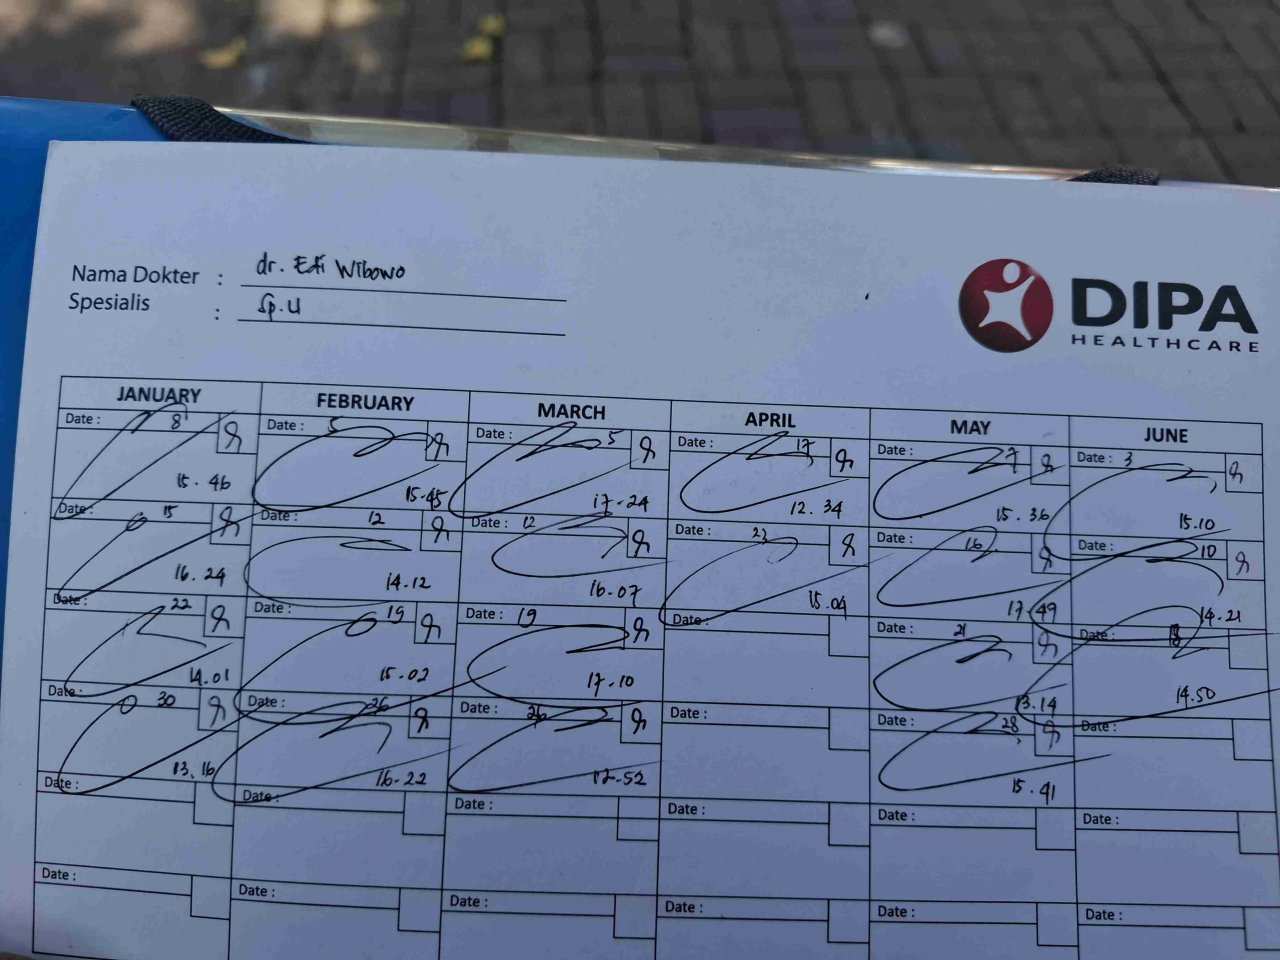 Nama Dokter : dr. Edi Wibowo
Spesialis : Sp.U
DIPA
HEALTHCARE
JANUARY FEBRUARY MARCH APRIL MAY JUNE
Date : 8 Date : 5 Date : 5 Date : 17 Date : 7 Date : 3
15.46 15.45 17-24 12.34 15.36 15.10
Date : 15 Date : 12 Date : 12 Date : 23 Date : 16 Date : 10
16.24 14.12 16.07 15.04 17.49 14.21
Date : 22 Date : 19 Date : 19 Date : Date : 21 Date :
14.01 15.02 17.10 13.14 14.50
Date : 30 Date : 26 Date : 26 Date : Date : 28 Date :
13.16 16-22 12-52 15.41
Date : Date : Date : Date : Date : Date :
Date : Date : Date : Date : Date : Date :